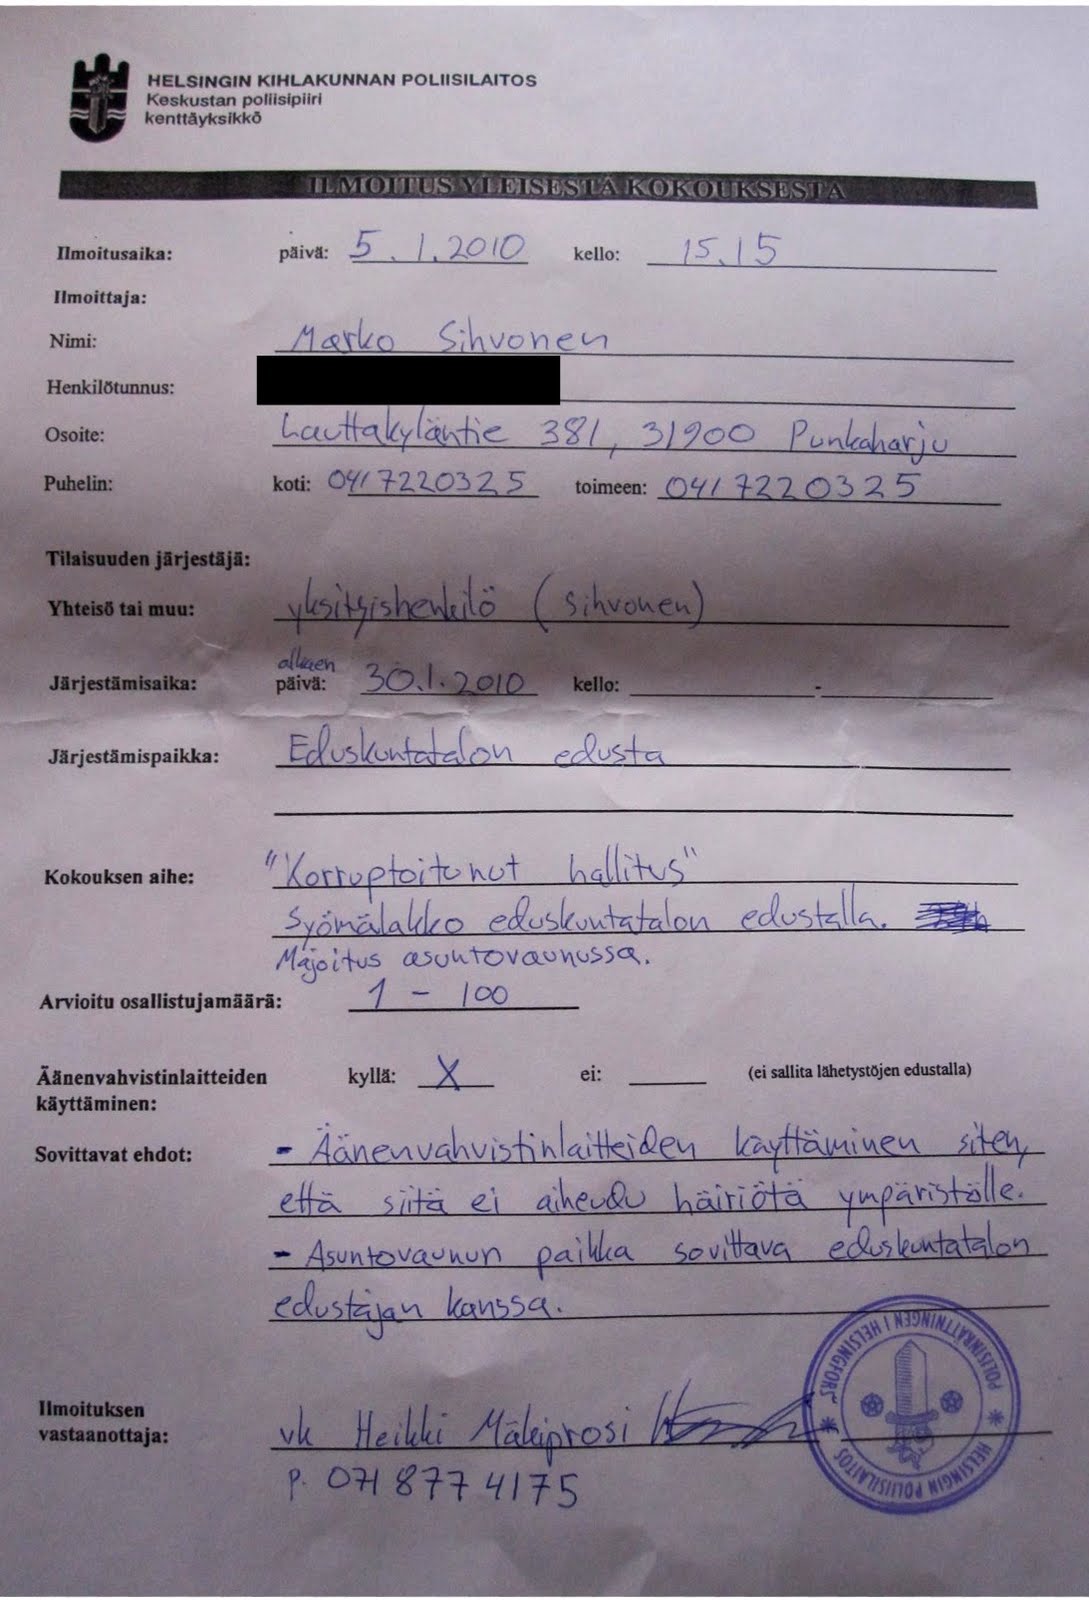 HELSINGIN KIHLAKUNNAN POLIISILAITOS
Keskustan poliisipiiri
kenttäyksikkö
ILMOITUS YLEISESTÄ KOKOUKSESTA
Ilmoitusaika: päivä: 5.1.2010 kello: 15.15
Ilmoittaja:
Nimi: Marko Sihvonen
Henkilötunnus:
Osoite: Lauttakyläntie 381, 31900 Punkaharju
Puhelin: koti: 041 7220325 toimeen: 041 7220325
Tilaisuuden järjestäjä:
Yhteisö tai muu: yksityishenkilö (Sihvonen)
alkaen
Järjestämisaika: päivä: 30.1.2010 kello: -
Järjestämispaikka: Eduskuntatalon edusta
Kokouksen aihe: "Korruptoitunut hallitus"
Syömälakko eduskuntatalon edustalla.
Majoitus asuntovaunussa.
Arvioitu osallistujamäärä: 1 - 100
Äänenvahvistinlaitteiden kyllä: X ei: (ei sallita lähetystöjen edustalla)
käyttäminen:
Sovittavat ehdot: - Äänenvahvistinlaitteiden käyttäminen siten,
että siitä ei aiheudu häiriötä ympäristölle.
- Asuntovaunun paikka sovittava eduskuntatalon
edustajan kanssa.
Ilmoituksen
vastaanottaja: vk Heikki Mäkiprosi
p. 071 877 4175
POLISINRÄTTNINGEN I HELSINGFORS
HELSINGIN POLIISILAITOS